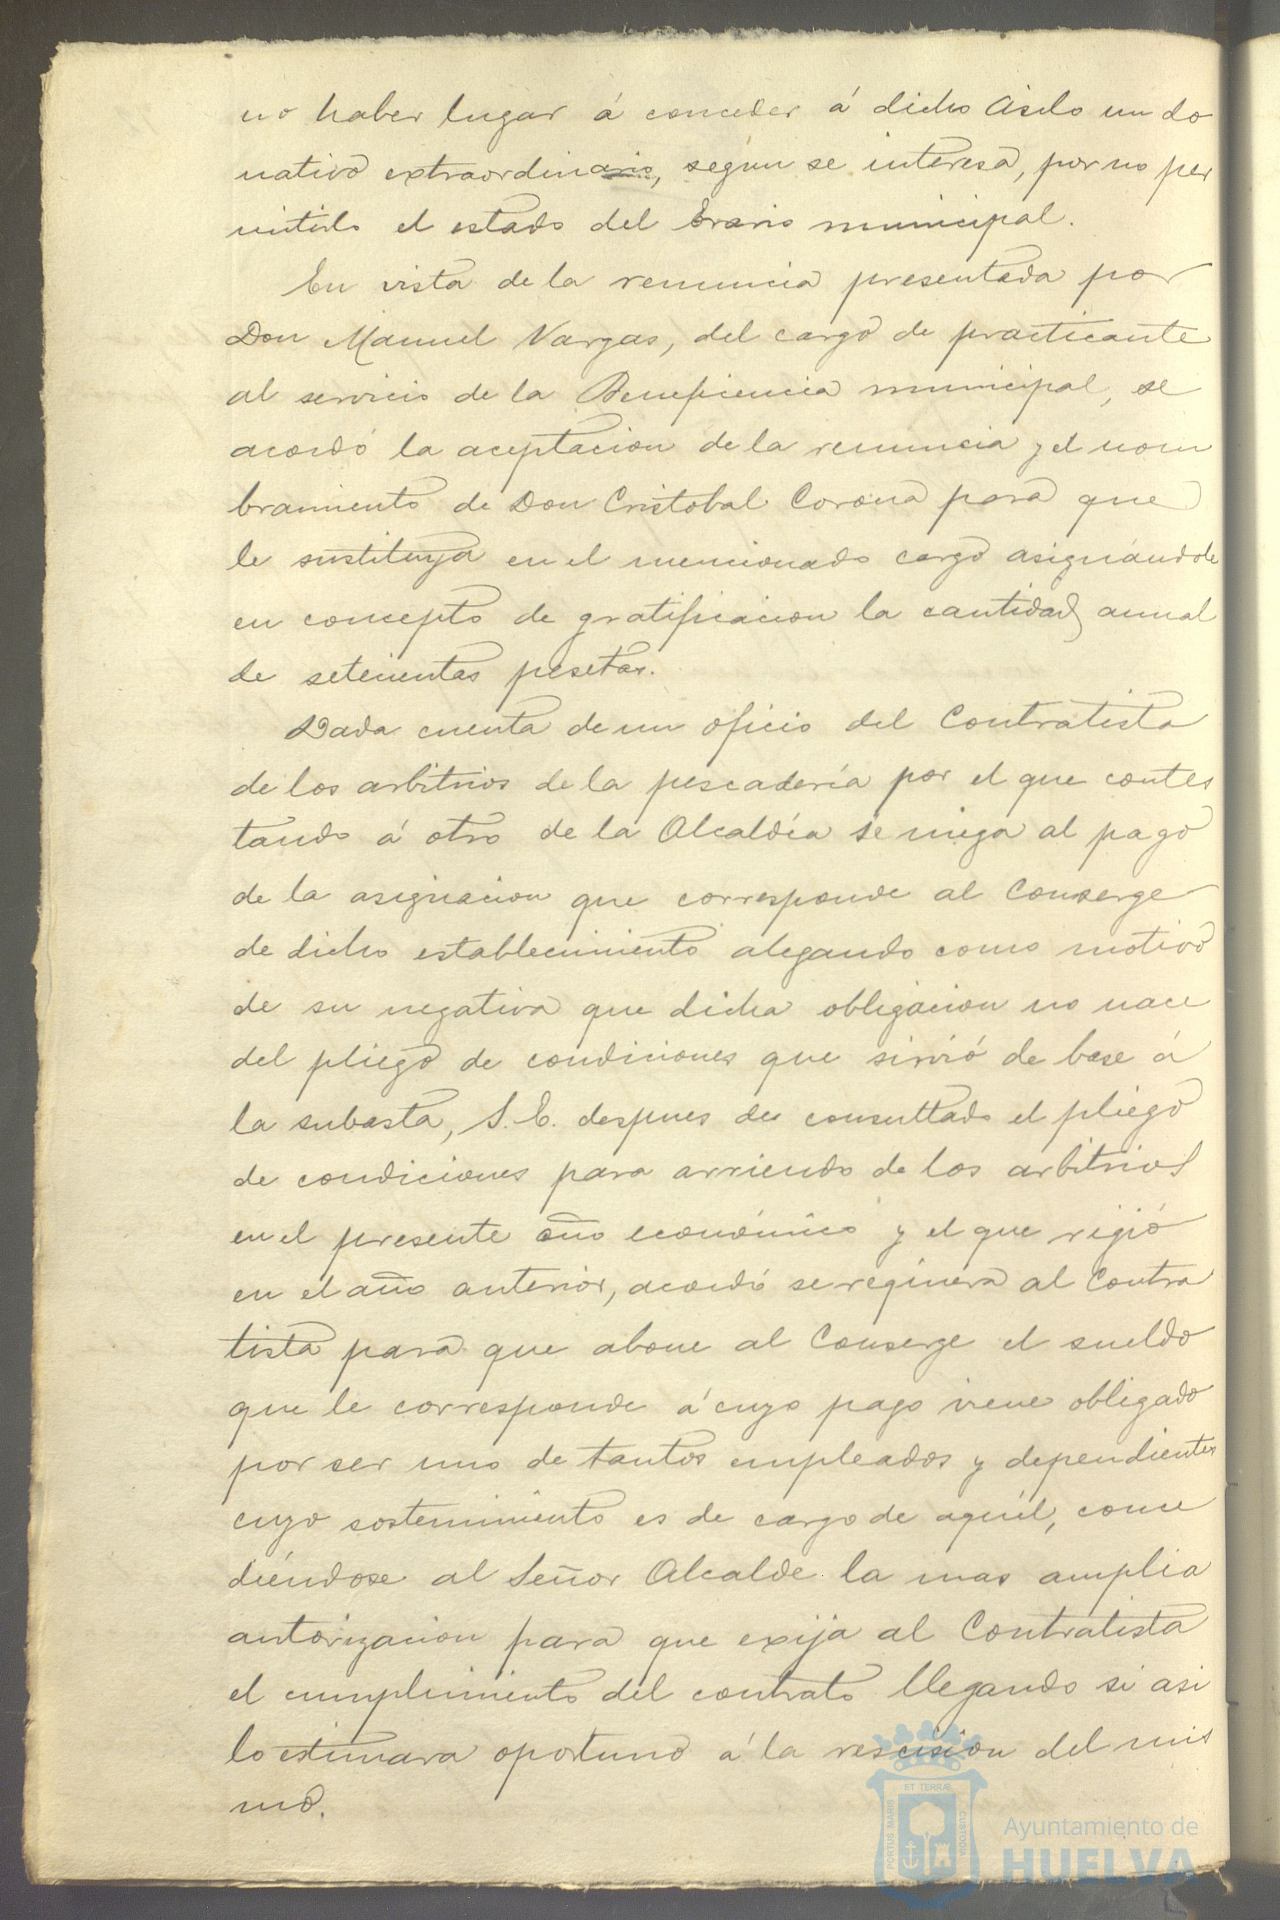 no haber lugar á conceder á dicho Asilo un do
nativo extraordinario, segun se interesa, por no per
mitirlo el estado del Erario municipal.
En vista de la renuncia presentada por
Don Manuel Vargas, del cargo de practicante
al servicio de la Beneficencia municipal, se
acordó la aceptacion de la renuncia y el nom
bramiento de Don Cristobal Corona para que
le sustituya en el mencionado cargo asignándole
en concepto de gratificacion la cantidad anual
de setecientas pesetas.
Dada cuenta de un oficio del Contratista
de los arbitrios de la pescadería por el que contes
tando á otro de la Alcaldía se niega al pago
de la asignacion que corresponde al Conserge
de dicho establecimiento alegando como motivo
de su negativa que dicha obligacion no nace
del pliego de condiciones que sirvió de base á
la subasta, S. E. despues de consultado el pliego
de condiciones para arriendo de los arbitrios
en el presente año económico y el que rigió
en el año anterior, acordó se requiera al Contra
tista para que abone al Conserge el sueldo
que le corresponde á cuyo pago viene obligado
por ser uno de tantos empleados y dependientes
cuyo sostenimiento es de cargo de aquél, conce
diéndose al Señor Alcalde la mas amplia
autorizacion para que exija al Contratista
el cumplimiento del contrato llegando si asi
lo estimara oportuno á la rescision del mis
mo.
ET TERRÆ
PORTUS MARIS
CUSTODIA
Ayuntamiento de
HUELVA